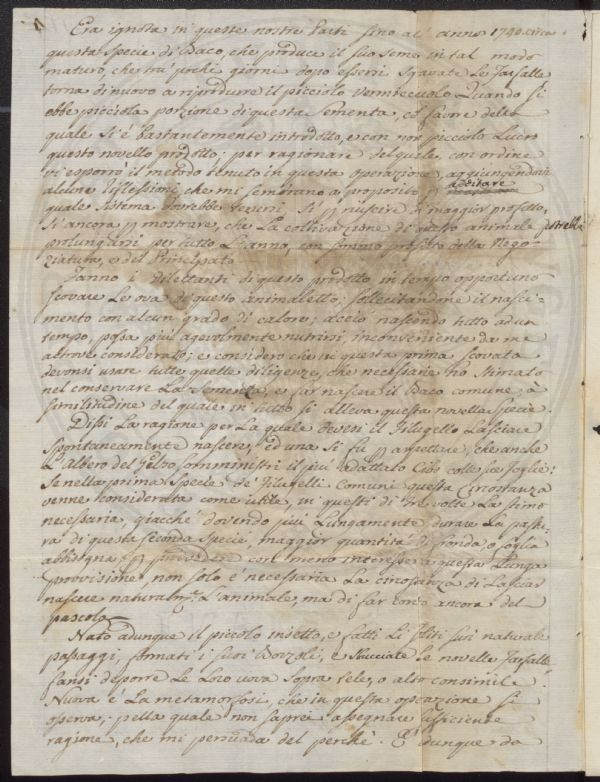 Era ignota in queste nostre Parti sino all' anno 1740. circa
questa Specie di Baco, che produce il suo seme in tal modo
maturo, che trà pochi giorni dopo essersi sgravate Le Farfalle
torna di nuovo a riprodurre il picciolo vermicciuolo. Quando si
ebbe picciola porzione di questa sementa, col favore della
quale si è bastantemente introdotto, e con non picciola Lucro
questo novello prodotto; per ragionare del quale, con ordine
vi esporrò il metodo tenuto in questa operazione, aggiungendovi
alcune riflessioni che mi sembrano a proposito p additare
quale sistema dovrebbe tenersi. Si p riuscire di maggior profitto,
si ancora p mostrare, che La coltivazione di questo animale potrebbe
prolungarsi per tutto L'anno, con sommo profitto della Nego-
ziatura, e del Principato.
Fanno i dilettanti di questo prodotto in tempo opportuno
scovare Le ova di questo animaletto; sollecitandone il nasci-
mento con alcun grado di calore; acciò nascendo tutto ad un
tempo, possa più agevolmente nutrirsi, inconveniente da me
altrove considerato; e considero che in questa prima scovata
devonsi usare tutte quelle diligenze, che necessarie ho stimato
nel conservare La Semenza, e far nascere il Baco comune, à
similitudine del quale in tutto si alleva questa novella specie.
Dissi La ragione per La quale devesi il Filugello Lasciare
spontaneamente nascere, ed una si fu p aspettare, che anche
L'albero del Gelso somministri il più adattato Cibo colle sue foglie.
Se nella prima Specie de' Filugelli Comuni questa Circostanza
venne considerata come utile, in questi di tre volte La stimo
necessaria, giacchè dovendo più Lungamente durare La pastu-
ra di questa seconda specie, maggior quantità di fronda, o foglia
abbisogna p provedere con meno interesse a questa Lunga
provvisione, non solo è necessaria La circostanza di Lasciar
nascere naturalmte. L'animale, ma di far conto ancora del
pascolo.
Nato adunque il piccolo insetto, e fatti Li soliti suoi naturale
passaggi, formati i suoi Bozzoli, e sbucciate Le novelle Farfalle
fansi deporre Le Loro uova sopra tele, o altro consimile.
Nuova è La metamorfosi, che in questa operazione si
osserva, della quale non saprei assegnare sufficiente
ragione, che mi persuada del perchè. È dunque da